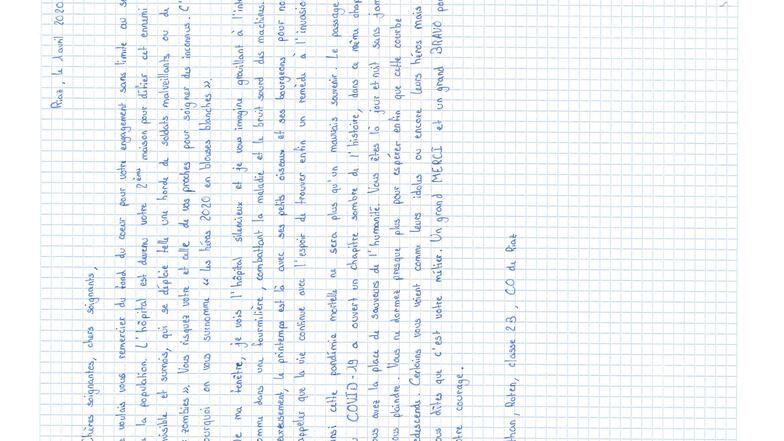 Riaz, le 1 avril 2020
Chères soignantes, chers soignants,
voulais vous remercier du fond du coeur pour votre engagement sans limite au se
la population. L'hôpital est devenu votre 2ème maison pour défier cet ennemi
isible et surnois, qui se déploie telle une horde de soldats malveillants ou de
zombies ». Vous risquez votre et celle de vos proches pour soigner des inconnus. C'
ourquoi on vous surnomme « les héros 2020 en blouses blanches ».
e ma fenêtre, je vois l'hôpital silencieux et je vous imagine grouillant à l'int
omme dans une fourmilière, combattant la maladie et le bruit sourd des machines.
eureusement, le printemps est là avec ses petits oiseaux et ses bourgeons pour no
appeler que la vie continue avec l'espoir de trouver enfin un remède à l'invasio
nsi cette pandémie mortelle ne sera plus qu'un mauvais souvenir. Le passage
u COVID-19 a ouvert un chapitre sombre de l'histoire, dans ce même chap
ous avez la place de sauveurs de l'humanité. Vous êtes là jour et nuit sans jam
ous plaindre. Vous ne dormez presque plus pour espérer enfin que cette courbe
edescende. Certains vous voient comme leurs idoles ou encore leurs héros mais
ous dites que c'est votre métier. Un grand MERCI et un grand BRAVO po
otre courage.
classe 23, CO de Riaz